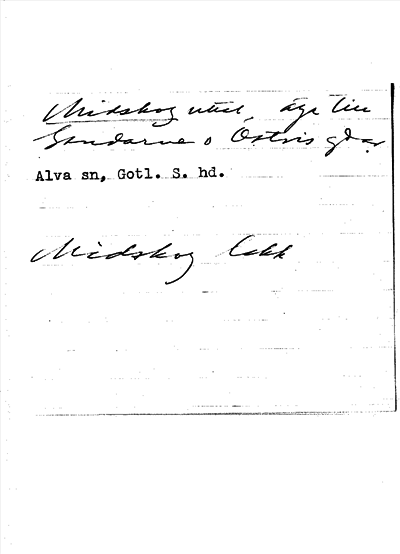 Midskog utsl, äga till
Smidarne o Östris gdar
Alva sn, Gotl. S. hd.
Midskog